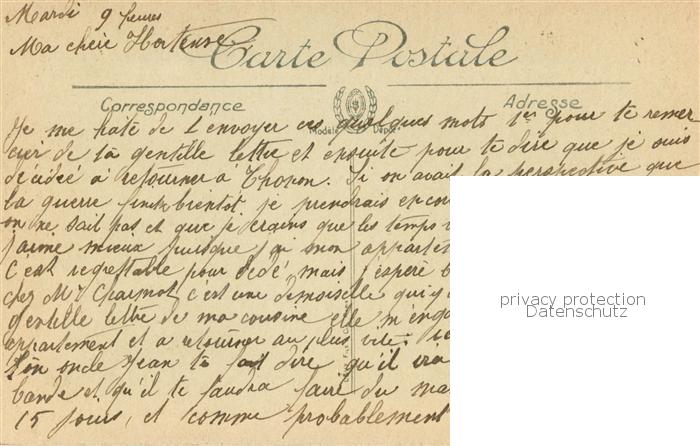 Mardi 9 heures
Ma chère Hortense
Carte Postale
Correspondance
Adresse
Modèle Déposé
Je me hate de t'envoyer ces quelques mots 1er pour te remer
cier de ta gentille lettre et ensuite pour te dire que je suis
décidée à retourner à Thonon. Si on avait la perspective que
la guerre finit bientôt je prendrais encor
on ne sait pas et que je crains que les temps
j'aime mieux puisque j'ai mon appartem
C'est regrettable pour Dédé, mais j'espère
chez Mr Charmot, c'est une demoiselle qui y
gentille lettre de ma cousine elle m'enga
appartement et a retourner au plus vite.
Ton oncle Jean te fait dire qu'il ira
bande et qu'il te faudra faire du ma
15 jours, et comme probablement
privacy protection
Datenschutz